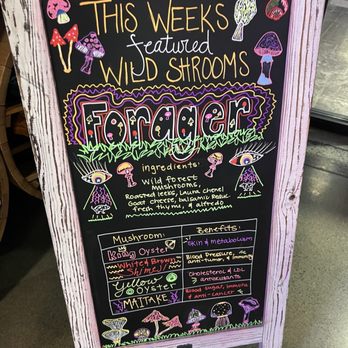 THIS WEEKS
featured
WILD SHROOMS
Forager
ingredients:
wild forest
mushrooms,
Roasted leeks, Laura Chenel
Goat cheese, balsamic Reduc
fresh thyme, and alfredo
Mushroom: Benefits:
King Oyster Skin & metabolism
White & Brown Blood Pressure,
Shimeji anti-tumor, & immunity
Yellow Cholesterol & LDL
Oyster antioxidants
MAITAKE Blood sugar, immune
& anti-cancer